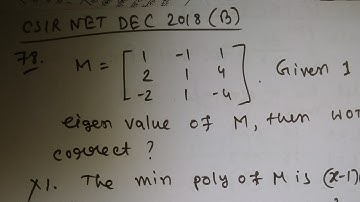 CSIR NET DEC 2018 (B)
78. M = [ 1 -1 1
2 1 4
-2 1 -4 ]. Given 1
eigen value of M, then
correct ?
X1. The min poly of M is (x-1)